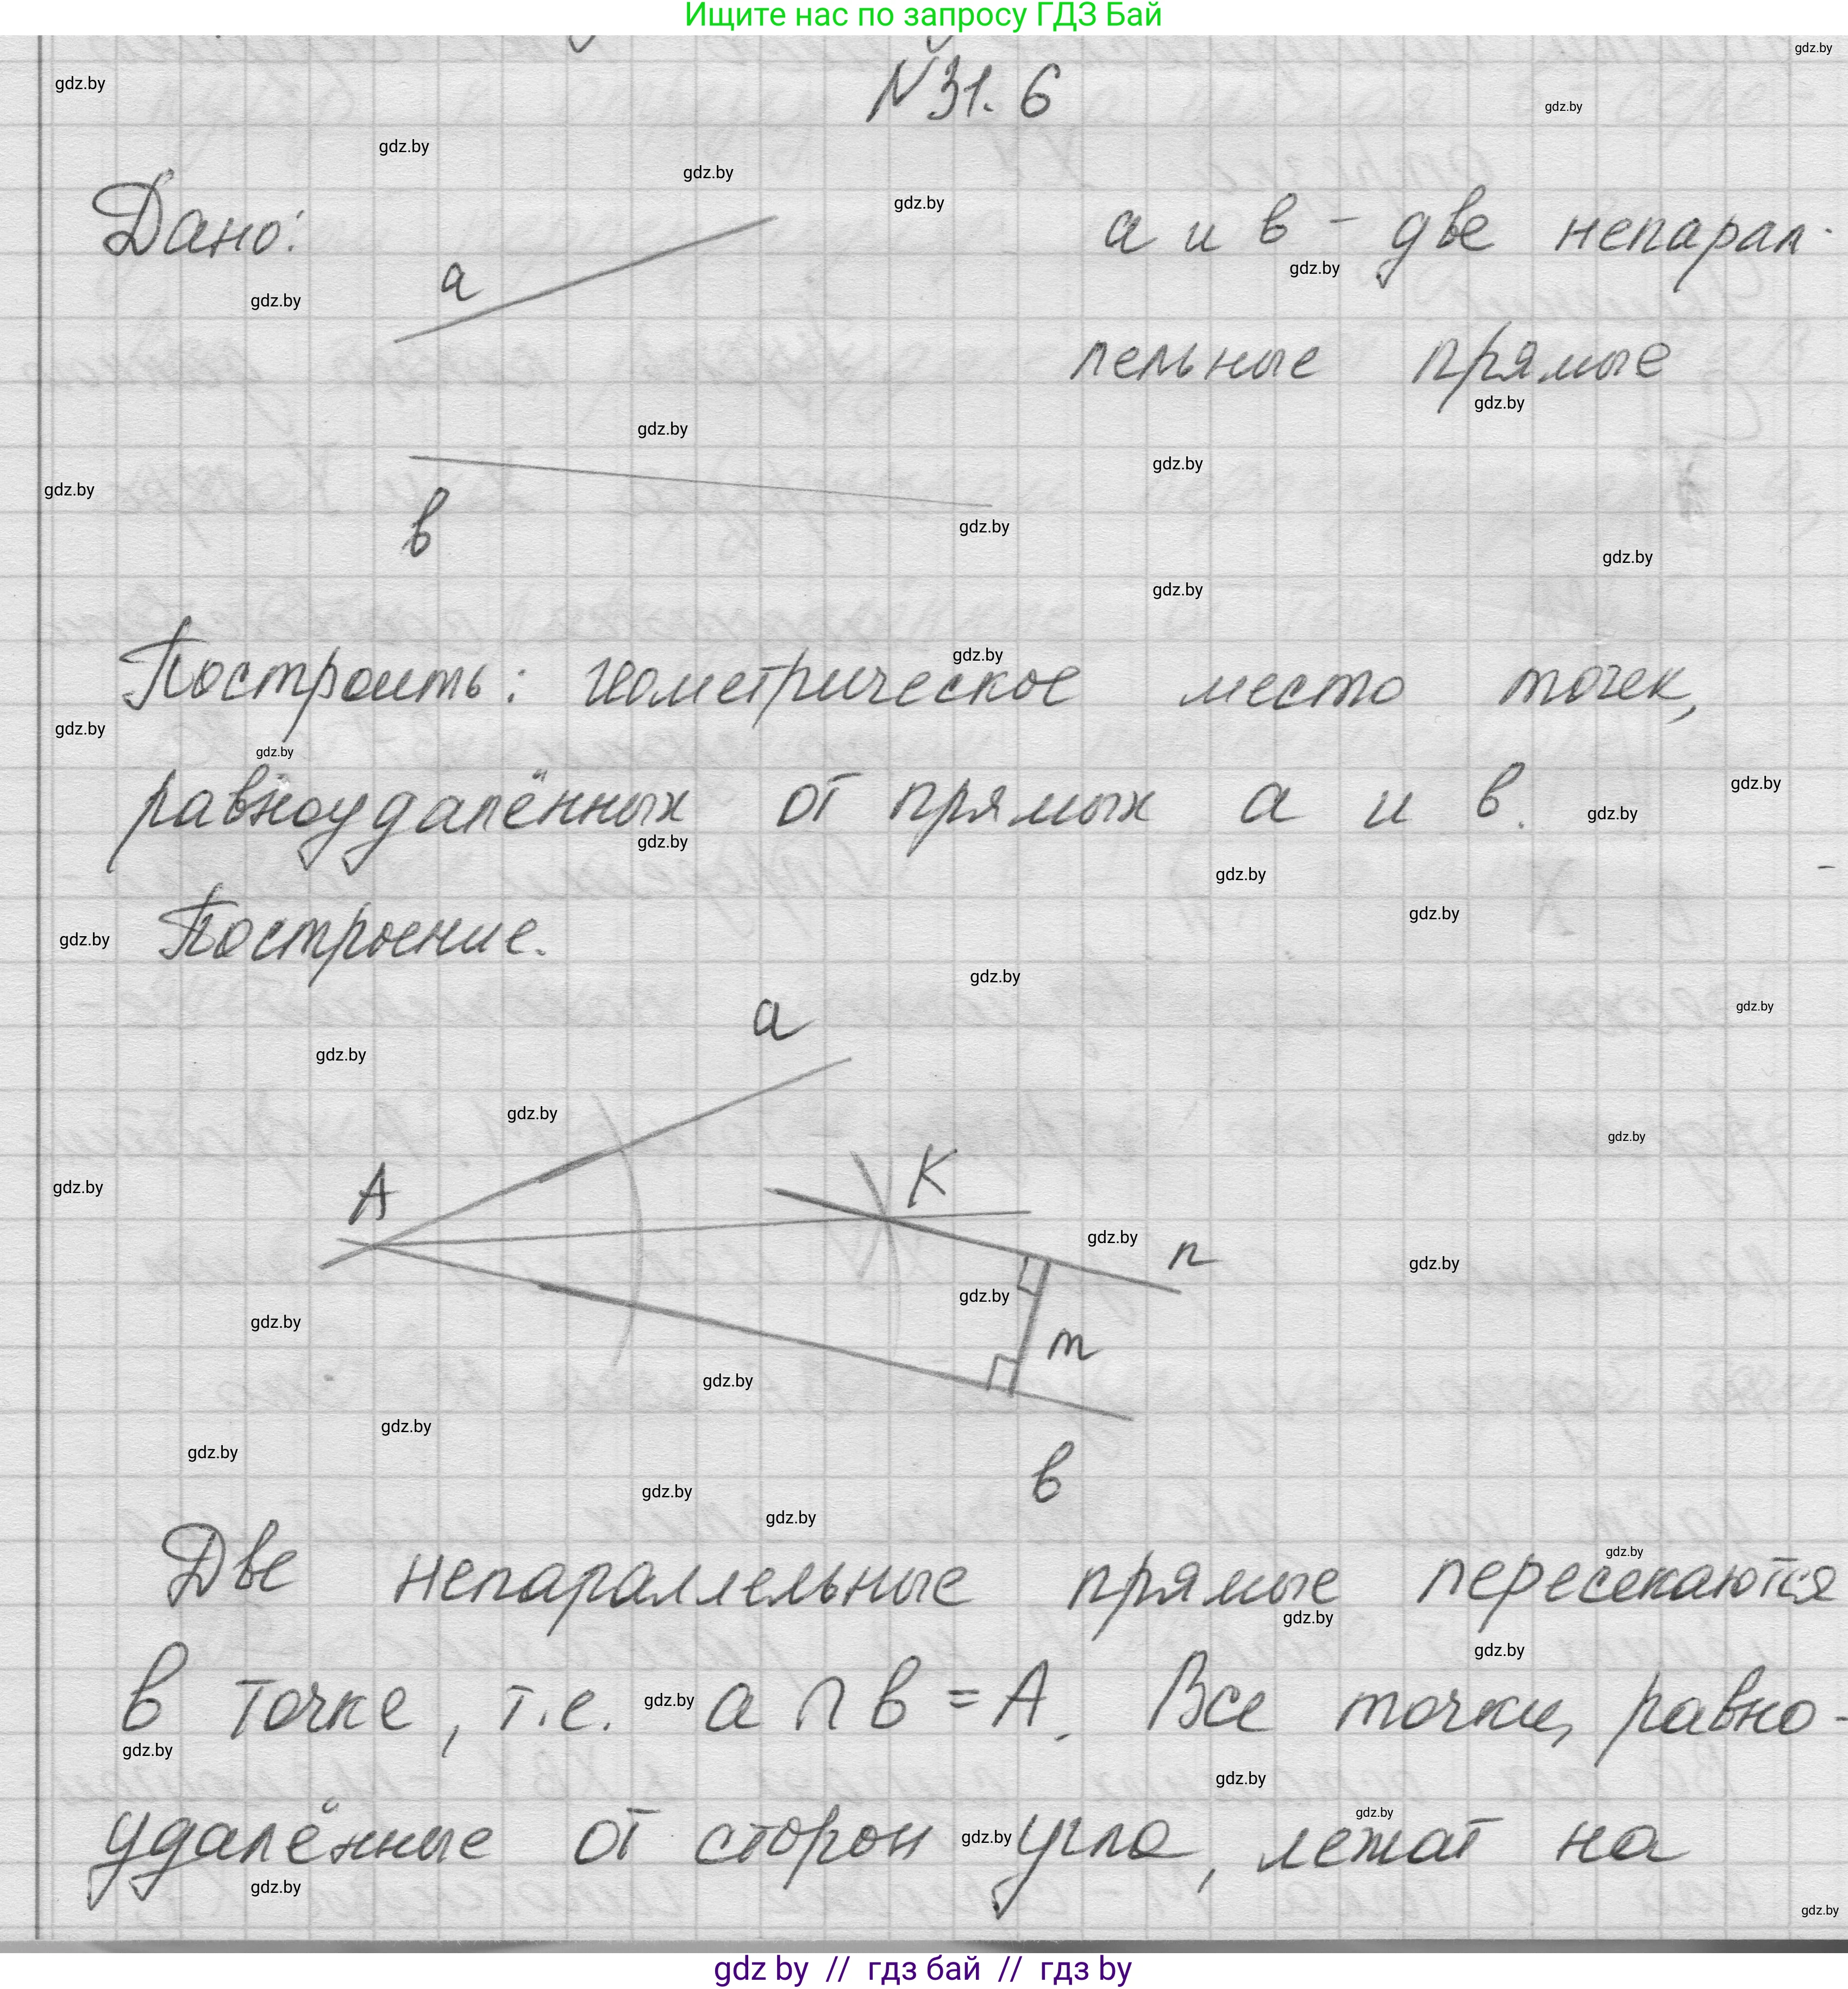 Ищите нас по запросу ГДЗ Бай
N 31. 6
Дано:
a
a и в - две непарал-
лельные прямые
в
Построить: геометрическое место точек,
равноудалённых от прямых a и в.
Построение.
a
A
K
n
m
в
Две непараллельные прямые пересекаются
в точке, т.е. a ∩ в = A. Все точки, равно-
удалённые от сторон угла, лежат на
gdz.by
gdz by // гдз бай // гдз by